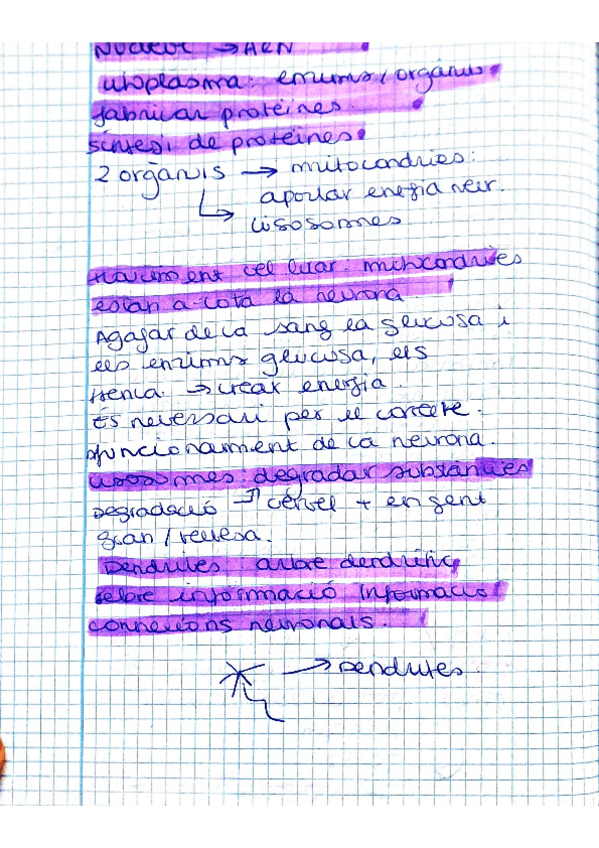 Nucleol → ARN
citoplasma: enzims / orgànuls
fabricar proteïnes.
síntesi de proteïnes.
2 orgànuls → mitocondries:
aportar energia neur.
↳ lisosomes
Moviment cel·lular. mitocondries
estan a tota la neurona
Agafar de la sang la glucosa i
els enzims glucosa, els
trenca. → crear energia.
És necessari per el correcte
funcionament de la neurona.
Lisosomes: degradar substàncies
Degradació → cervell + en gent
gran / vellesa.
Dendrites: arbre dendrític
rebre informació Informació
connexions neuronals.
→ Dendrites